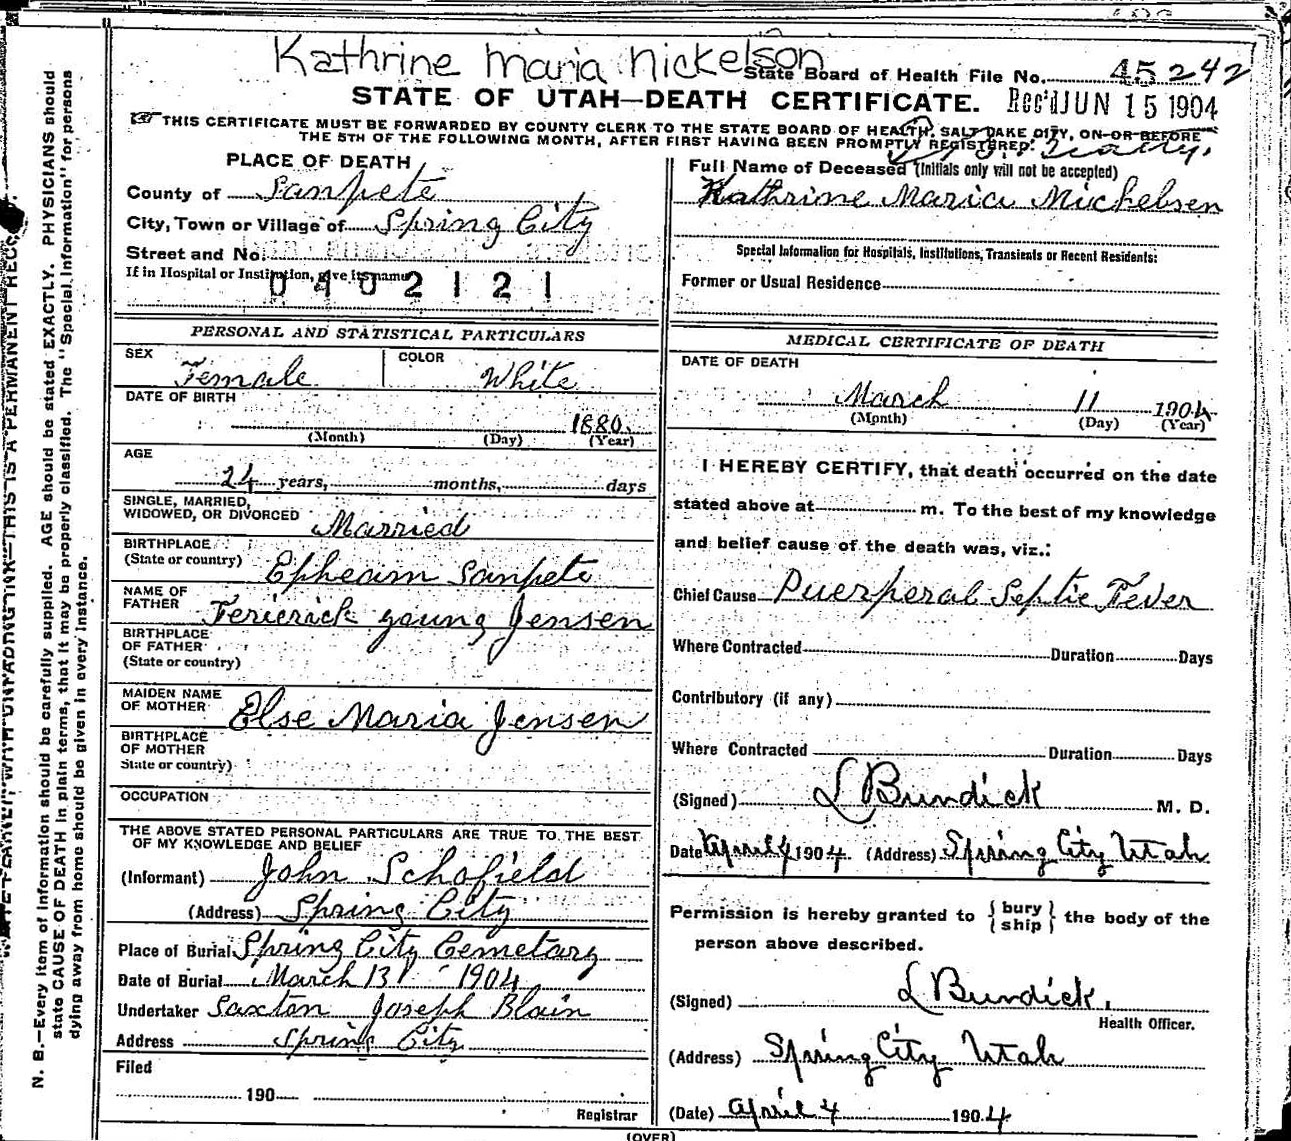 Kathrine Maria Nickelson
State Board of Health File No. 45242
STATE OF UTAH—DEATH CERTIFICATE. Rec'd JUN 15 1904
☞THIS CERTIFICATE MUST BE FORWARDED BY COUNTY CLERK TO THE STATE BOARD OF HEALTH, SALT LAKE CITY, ON OR BEFORE
THE 5TH OF THE FOLLOWING MONTH, AFTER FIRST HAVING BEEN PROMPTLY REGISTERED.
PLACE OF DEATH
County of Sanpete
City, Town or Village of Spring City
Street and No.
If in Hospital or Institution, give its name
0402121
PERSONAL AND STATISTICAL PARTICULARS
SEX Female COLOR White
DATE OF BIRTH
1880
(Month) (Day) (Year)
AGE
24 years, months, days
SINGLE, MARRIED,
WIDOWED, OR DIVORCED Married
BIRTHPLACE
(State or country) Epheam Sanpete
NAME OF
FATHER Ferierick young Jensen
BIRTHPLACE
OF FATHER
(State or country)
MAIDEN NAME
OF MOTHER Else Maria Jensen
BIRTHPLACE
OF MOTHER
State or country)
OCCUPATION
THE ABOVE STATED PERSONAL PARTICULARS ARE TRUE TO THE BEST
OF MY KNOWLEDGE AND BELIEF
(Informant) John Schofield
(Address) Spring City
Place of Burial Spring City Cemetary
Date of Burial March 13 1904
Undertaker Saxton Joseph Blain
Address Spring City
Filed
190
Registrar
Full Name of Deceased (Initials only will not be accepted)
Kathrine Maria Mickelsen
Special Information for Hospitals, Institutions, Transients or Recent Residents:
Former or Usual Residence
MEDICAL CERTIFICATE OF DEATH
DATE OF DEATH
March 11 1904
(Month) (Day) (Year)
I HEREBY CERTIFY, that death occurred on the date
stated above at m. To the best of my knowledge
and belief cause of the death was, viz.:
Chief Cause Puerperal Septic Fever
Where Contracted Duration Days
Contributory (if any)
Where Contracted Duration Days
(Signed) L Burdick M. D.
Date April 4 1904. (Address) Spring City Utah
Permission is hereby granted to { bury ship } the body of the
person above described.
(Signed) L Burdick.
Health Officer.
(Address) Spring City Utah
(Date) April 4 1904
(OVER)
N. B.—Every item of information should be carefully supplied. AGE should be stated EXACTLY. PHYSICIANS should
state CAUSE OF DEATH in plain terms, that it may be properly classified. The "Special Information" for persons
dying away from home should be given in every instance.